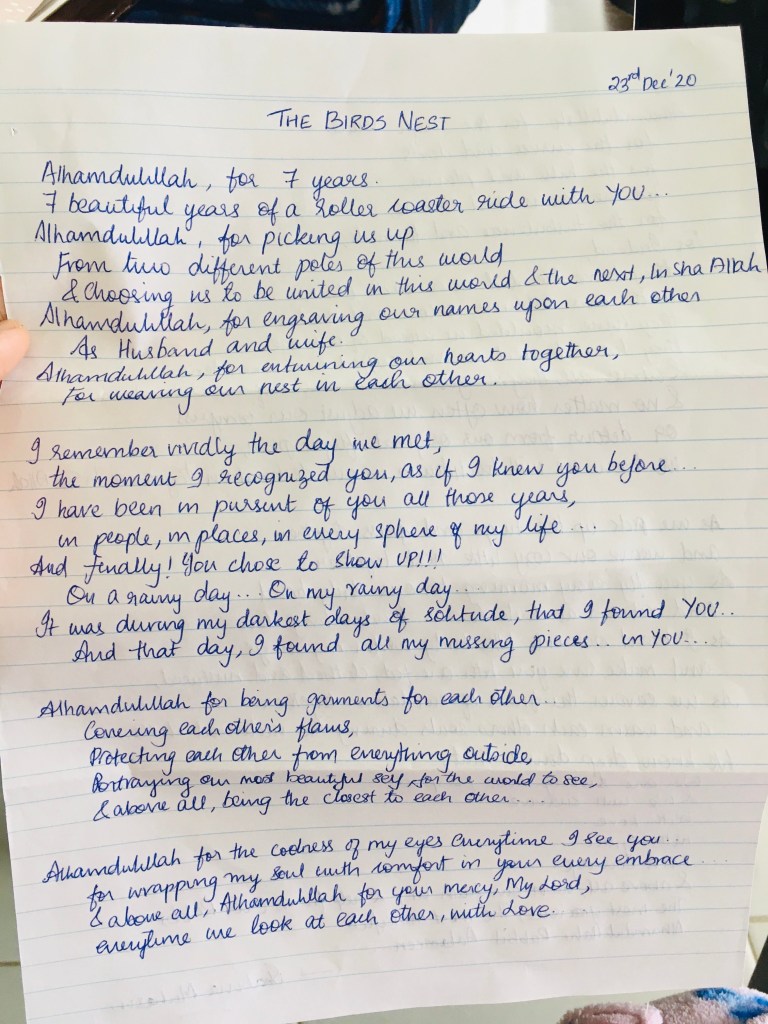 23rd Dec'20
THE BIRDS NEST
Alhamdulillah, for 7 years.
7 beautiful years of a roller coaster ride with YOU...
Alhamdulillah, for picking us up
From two different poles of this world
& choosing us to be united in this world & the next, In Sha Allah
Alhamdulillah, for engraving our names upon each other
As Husband and wife.
Alhamdulillah, for entwining our hearts together,
For weaving our nest in each other.
I remember vividly the day we met,
the moment I recognized you, as if I knew you before...
I have been in pursuit of you all those years,
in people, in places, in every sphere of my life...
And finally! You chose to show UP!!!
On a rainy day... On my rainy day..
It was during my darkest days of solitude, that I found YOU..
And that day, I found all my missing pieces.. in YOU...
Alhamdulillah for being garments for each other..
Covering each other's flaws,
Protecting each other from everything outside,
Portraying our most beautiful self for the world to see,
& above all, being the closest to each other....
Alhamdulillah for the coolness of my eyes everytime I see you...
for wrapping my soul with comfort in your every embrace....
& above all, Alhamdulillah for your mercy, My Lord,
everytime we look at each other, with Love.